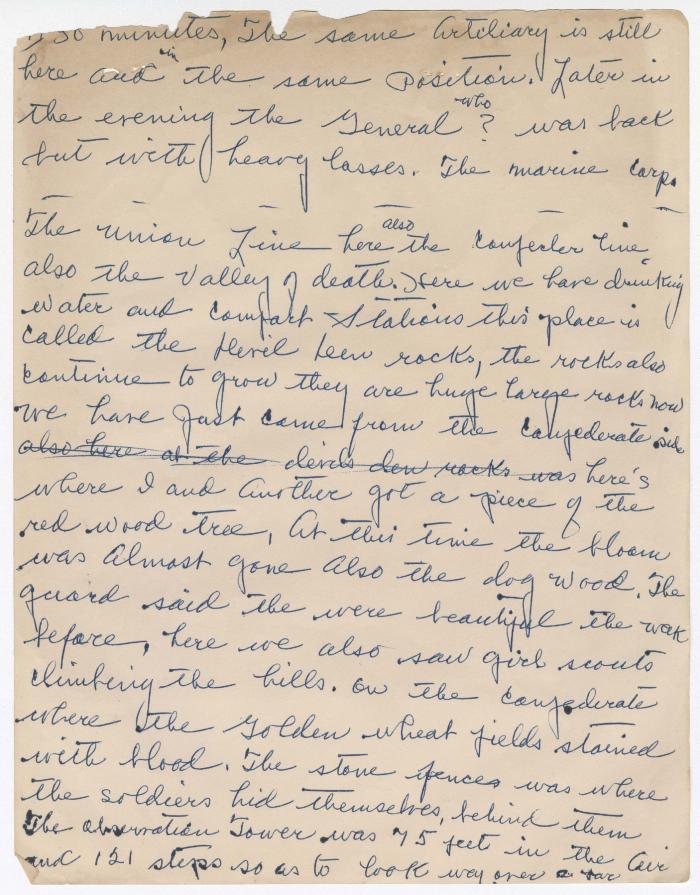 30 minutes, The same Artiliary is still
here and in the same Position. Later in
the evening the General who ? was back
but with heavy losses. The marine Corp.
The Union Line here also the Confecter line
also the Valley of death. Here we have drinking
water and Comfort Stations this place is
called the Devil Deen rocks, the rocks also
continue to grow they are huge large rocks now
we have just came from the Confederate side
also here at the devils den rocks was here's
where I and Another got a piece of the
red wood tree, At this time the bloom
was Almost gone Also the dog wood. The
guard said the were beautiful the week
before, here we also saw girl scouts
climbing the hills. on the Confederate
where the Golden wheat fields stained
with blood. The stone fences was where
the soldiers hid themselves, behind them
The observation Tower was 75 feet in the Air
and 121 steps so as to look way over a far